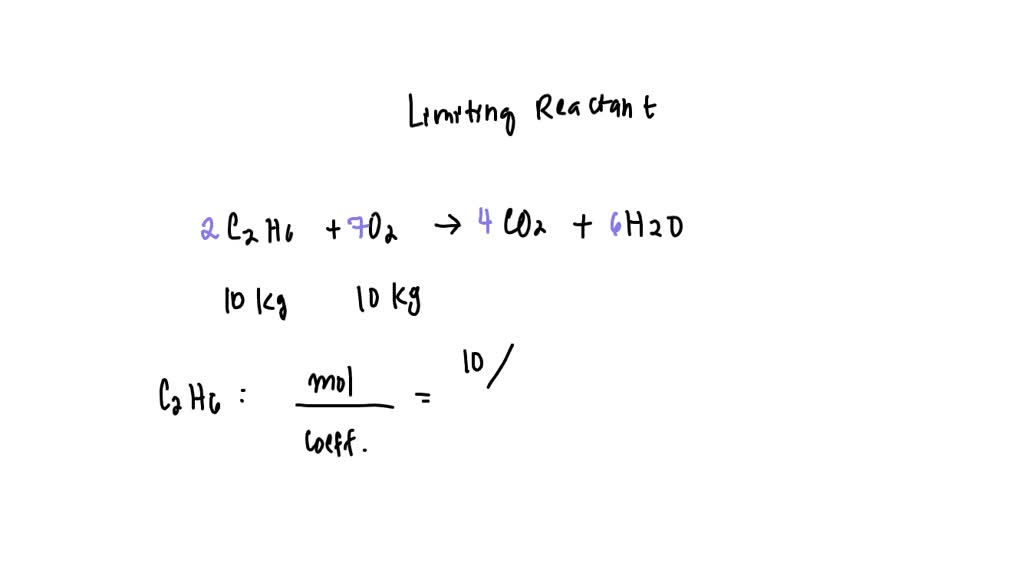 Limiting Reactant
2 C2H6 + 7O2 → 4 CO2 + 6H2O
10 kg 10 kg
C2H6 : mol / coeff. = 10 /